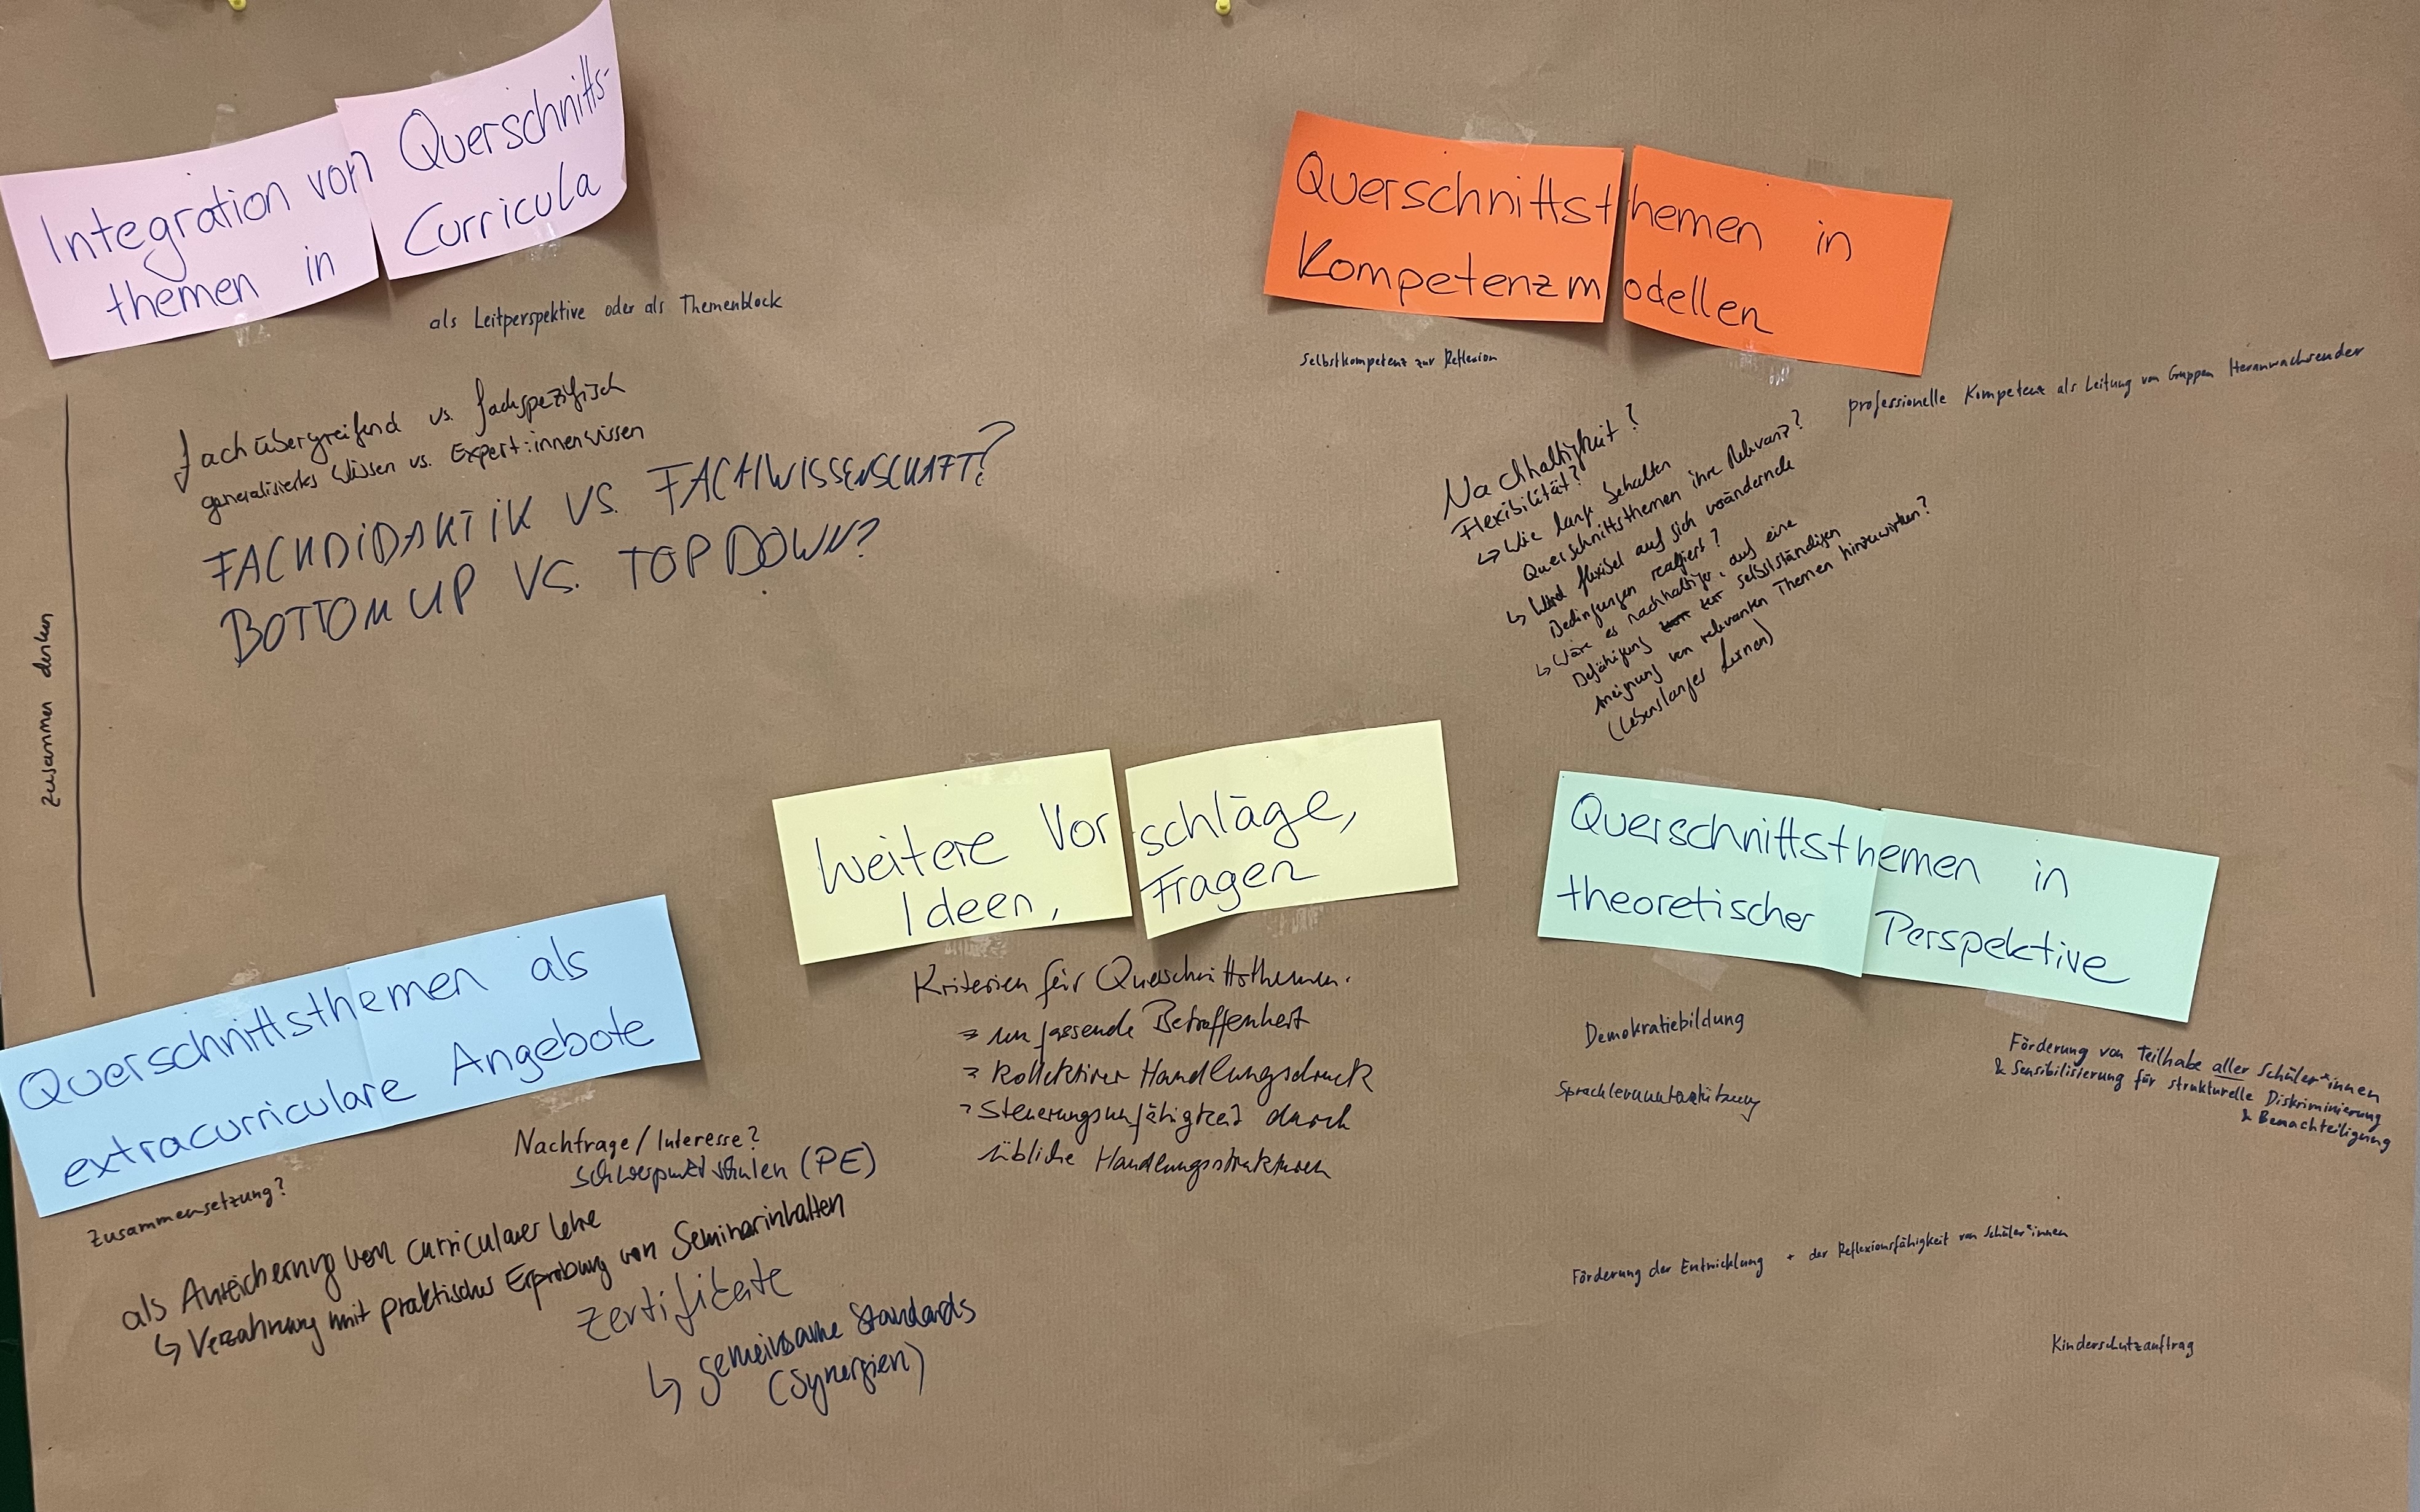 Integration von Querschnitts-
themen in Curricula
als Leitperspektive oder als Themenblock
fachübergreifend vs. fachspezifisch
generalisiertes Wissen vs. Expert:innenwissen
FACHDIDAKTIK VS. FACHWISSENSCHAFT?
BOTTOM UP VS. TOP DOWN?
zusammen denken
Querschnittsthemen in
Kompetenzmodellen
Selbstkompetenz zur Reflexion
professionelle Kompetenz als Leitung von Gruppen Heranwachsender
Nachhaltigkeit?
Flexibilität?
↳ Wie lang behalten
Querschnittsthemen ihre Relevanz?
↳ Wird flexibel auf sich verändernde
Bedingungen reagiert?
↳ Wäre es nachhaltiger, auf eine
Befähigung zur selbstständigen
Aneignung von relevanten Themen hinzuwirken?
(Lebenslanges Lernen)
Weitere Vorschläge,
Ideen, Fragen
Kriterien für Querschnittsthemen.
umfassende Betroffenheit
kollektiver Handlungsdruck
Steuerungsunfähigkeit durch
übliche Handlungsstrukturen
Querschnittsthemen in
theoretischer Perspektive
Demokratiebildung
Förderung von Teilhabe aller Schüler*innen
& Sensibilisierung für strukturelle Diskriminierung
& Benachteiligung
Förderung der Entwicklung + der Reflexionsfähigkeit von Schüler*innen
Kinderschutzauftrag
Querschnittsthemen als
extracurriculare Angebote
Zusammensetzung?
Nachfrage / Interesse?
Schwerpunktschulen (PE)
als Anreicherung von curricularer Lehre
↳ Verzahnung mit praktischer Erprobung von Seminarinhalten
Zertifikate
↳ gemeinsame Standards
(Synergien)